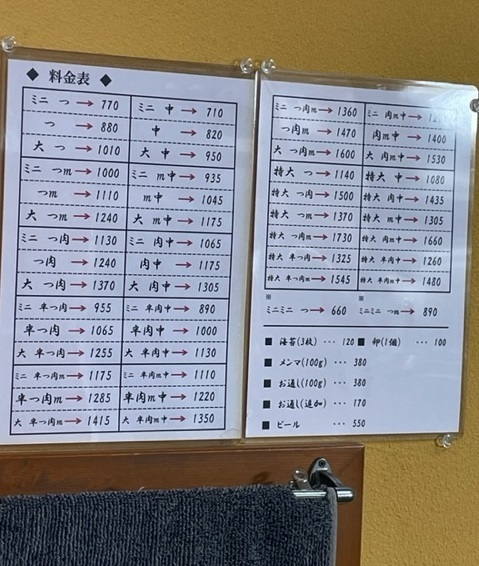 ◆ 料金表 ◆
ミニ つ → 770 ミニ 中 → 710
つ → 880 中 → 820
大 つ → 1010 大 中 → 950
ミニ つm → 1000 ミニ m中 → 935
つm → 1110 m中 → 1045
大 つm → 1240 大 m中 → 1175
ミニ つ肉 → 1130 ミニ 肉中 → 1065
つ肉 → 1240 肉中 → 1175
大 つ肉 → 1370 大 肉中 → 1305
ミニ 半つ肉 → 955 ミニ 半肉中 → 890
半つ肉 → 1065 半肉中 → 1000
大 半つ肉 → 1255 大 半肉中 → 1130
ミニ 半つ肉m → 1175 ミニ 半肉m中 → 1110
半つ肉m → 1285 半肉m中 → 1220
大 半つ肉m → 1415 大 半肉m中 → 1350
ミニ つ肉m → 1360 ミニ 肉m中 →
つ肉m → 1470 肉m中 → 1400
大 つ肉m → 1600 大 肉m中 → 1530
特大 つ → 1140 特大 中 → 1080
特大 つ肉 → 1500 特大 肉中 → 1435
特大 つm → 1370 特大 m中 → 1305
特大 つ肉m → 1730 特大 肉m中 → 1660
特大 半つ肉 → 1325 特大 半肉中 → 1260
特大 半つ肉m → 1545 特大 半肉m中 → 1480
※ ※
ミニミニ つ → 660 ミニミニ つm → 890
■ 海苔(3枚) ··· 120 ■ 卵(1個) ··· 100
■ メンマ(100g) ··· 380
■ お通し(100g) ··· 380
■ お通し(追加) ··· 170
■ ビール ··· 550